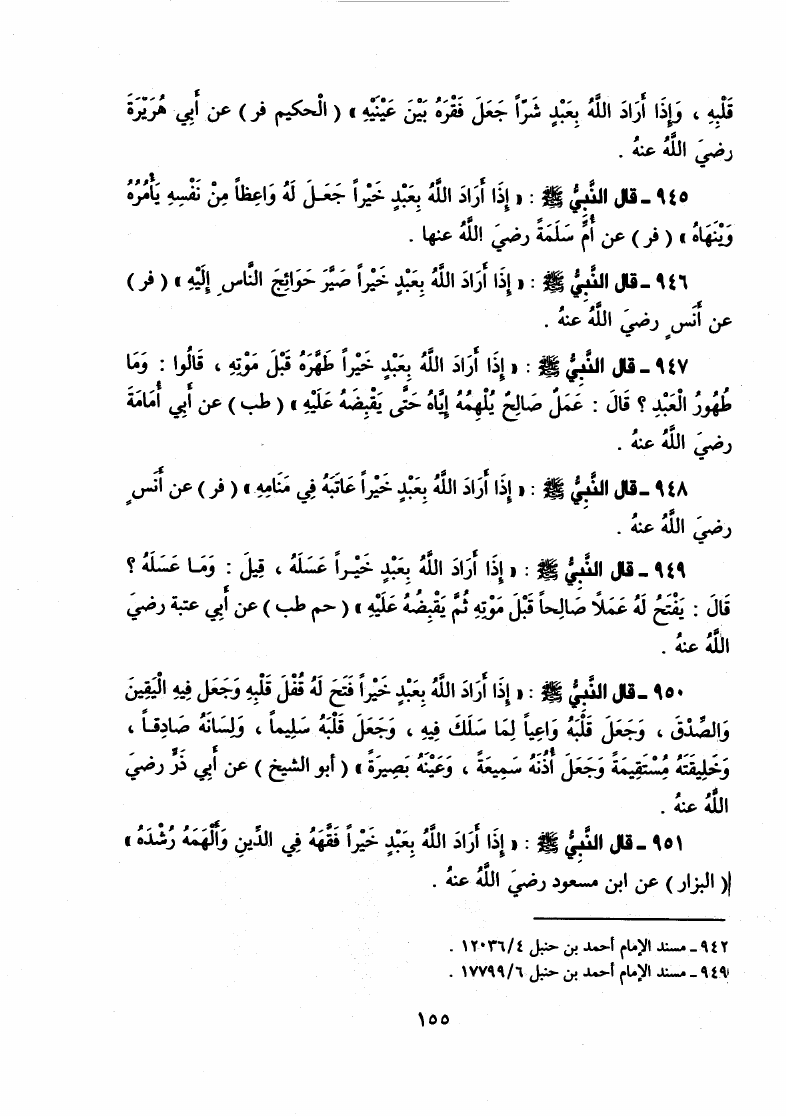 قَلْبِهِ ، وَإِذَا أَرَادَ اللَّهُ بِعَبْدٍ شَرّاً جَعَلَ فَقْرَهُ بَيْنَ عَيْنَيْهِ » ( الْحكيم فر ) عن أَبي هُرَيْرَةَ
رضيَ اللَّهُ عنهُ .
٩٤٥ ـ قال النَّبِيُّ ﷺ : « إِذَا أَرَادَ اللَّهُ بِعَبْدٍ خَيْراً جَعَـلَ لَهُ وَاعِظاً مِنْ نَفْسِهِ يَأْمُرُهُ
وَيَنْهَاهُ » ( فر ) عن أُمِّ سَلَمَةَ رضيَ اللَّهُ عنها .
٩٤٦ ـ قال النَّبِيُّ ﷺ : « إِذَا أَرَادَ اللَّهُ بِعَبْدٍ خَيْراً صَيَّرَ حَوَائِجَ النَّاسِ إِلَيْهِ » ( فر )
عن أَنَسٍ رضيَ اللَّهُ عنهُ .
٩٤٧ ـ قال النَّبِيُّ ﷺ : « إِذَا أَرَادَ اللَّهُ بِعَبْدٍ خَيْراً طَهَّرَهُ قَبْلَ مَوْتِهِ ، قَالُوا : وَمَا
طَهُورُ الْعَبْدِ ؟ قَالَ : عَمَلٌ صَالِحٌ يُلْهِمُهُ إِيَّاهُ حَتَّى يَقْبِضَهُ عَلَيْهِ » ( طب ) عن أَبي أُمَامَةَ
رضيَ اللَّهُ عنهُ .
٩٤٨ ـ قال النَّبِيُّ ﷺ : « إِذَا أَرَادَ اللَّهُ بِعَبْدٍ خَيْراً عَاتَبَهُ فِي مَنَامِهِ » ( فر ) عن أَنَسٍ
رضيَ اللَّهُ عنهُ .
٩٤٩ ـ قال النَّبِيُّ ﷺ : « إِذَا أَرَادَ اللَّهُ بِعَبْدٍ خَيْـراً عَسَلَهُ ، قِيلَ : وَمَـا عَسَلَهُ ؟
قَالَ : يَفْتَحُ لَهُ عَمَلًا صَالِحاً قَبْلَ مَوْتِهِ ثُمَّ يَقْبِضُهُ عَلَيْهِ » ( حم طب ) عن أَبي عتبة رضيَ
اللَّهُ عنهُ .
٩٥٠ ـ قال النَّبِيُّ ﷺ : « إِذَا أَرَادَ اللَّهُ بِعَبْدٍ خَيْراً فَتَحَ لَهُ قُفْلَ قَلْبِهِ وَجَعَلَ فِيهِ الْيَقِينَ
وَالصِّدْقَ ، وَجَعَلَ قَلْبَهُ وَاعِياً لِمَا سَلَكَ فِيهِ ، وَجَعَلَ قَلْبَهُ سَلِيماً ، وَلِسَانَهُ صَادِقـاً ،
وَخَلِيقَتَهُ مُسْتَقِيمَةً وَجَعَلَ أُذُنَهُ سَمِيعَةً ، وَعَيْنَهُ بَصِيرَةً » ( أبو الشيخ ) عن أَبي ذَرٍّ رضيَ
اللَّهُ عنهُ .
٩٥١ ـ قال النَّبِيُّ ﷺ : « إِذَا أَرَادَ اللَّهُ بِعَبْدٍ خَيْراً فَقَّهَهُ فِي الدِّينِ وَأَلْهَمَهُ رُشْدَهُ »
( البزار ) عن ابن مسعود رضيَ اللَّهُ عنهُ .
٩٤٢ ـ مسند الإمام أحمد بن حنبل ١٢٠٣٦/٤ .
٩٤٩ ـ مسند الإمام أحمد بن حنبل ١٧٧٩٩/٦ .
١٥٥